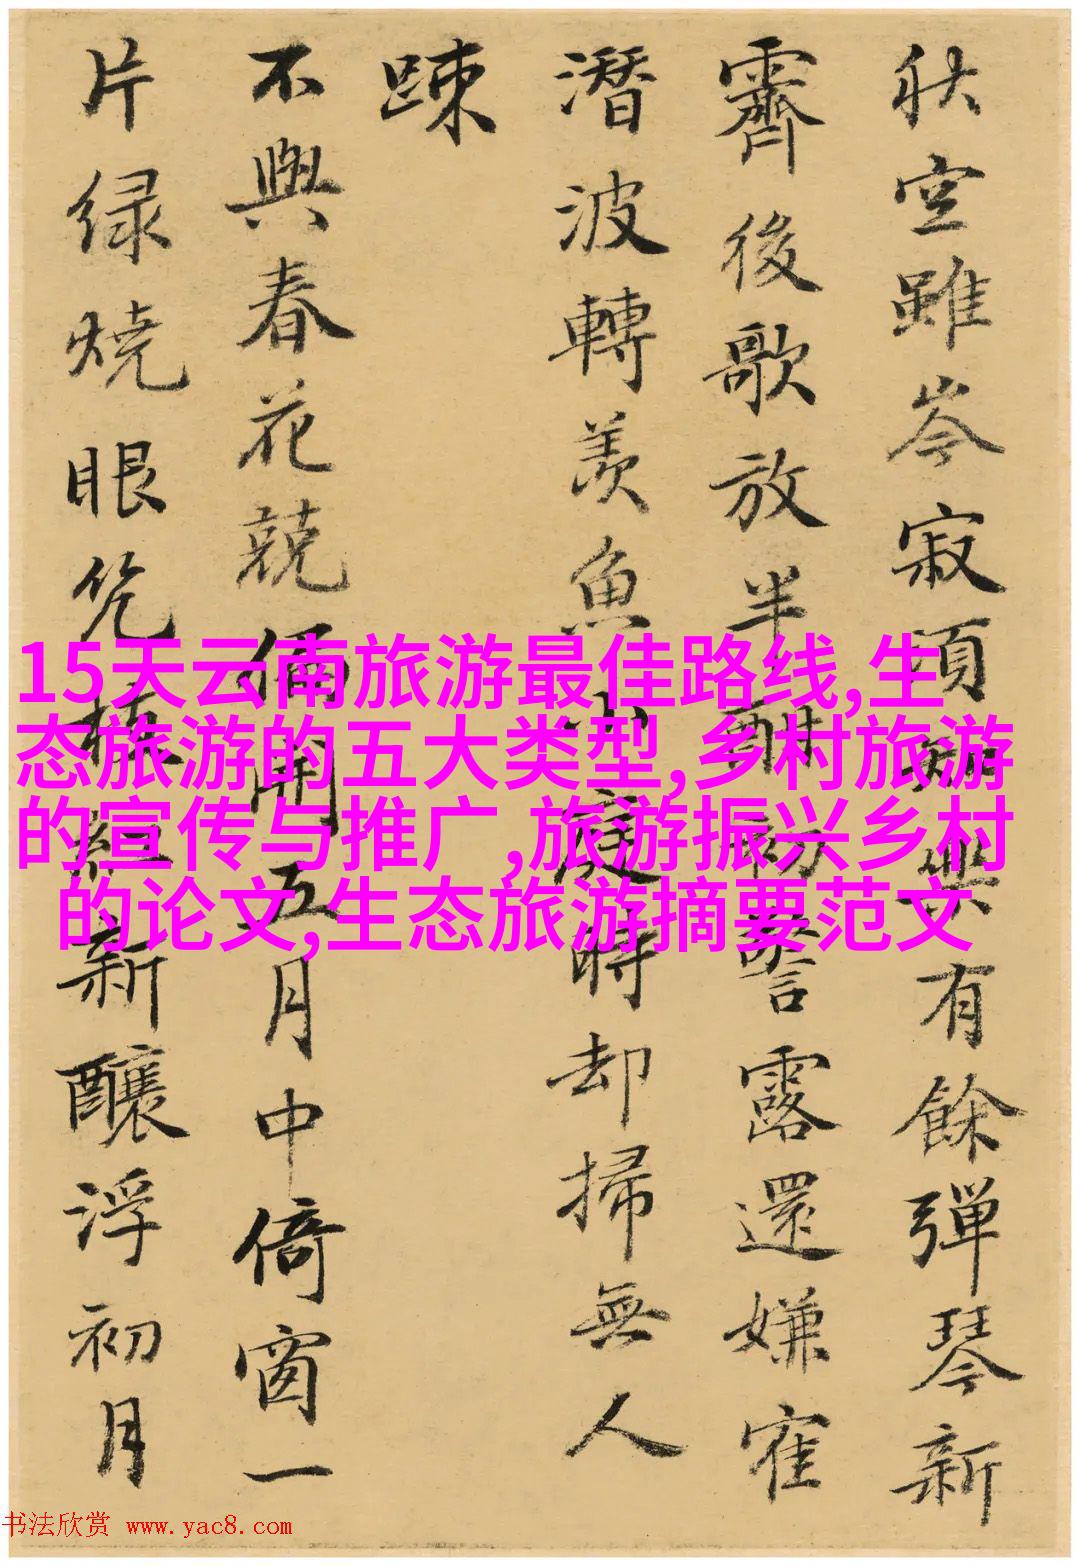 秋空雖岑寂頃知樂有餘彈琴新
霽後歌放半酣初警露還嫌寉
潛波轉羨魚小庭時却掃無人
踈
不與春花競偏開五月中倚窗一
片绿燒眼
新釀浮初月
15天云南旅游最佳路线,生
态旅游的五大类型,乡村旅游
的宣传与推广,旅游振兴乡村
的论文,生态旅游摘要范文
书法欣赏 www.yac8.com